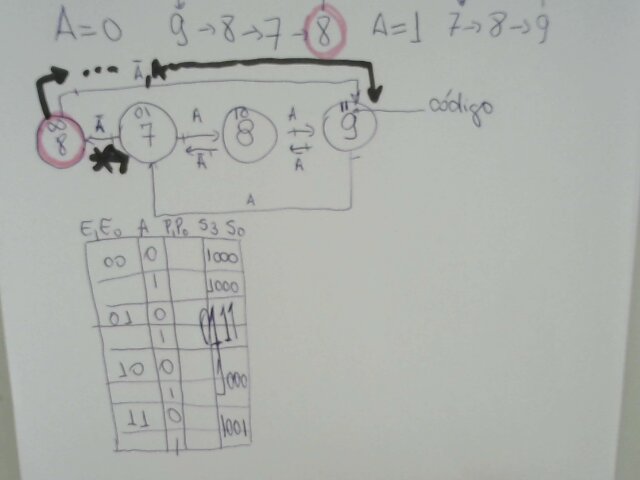 A=0 9→8→7→8 A=1 7→8→9
Ā,A
00 8 Ā 01 7 A Ā 10 8 A Ā 11 9 código
A
E₁E₀ A P₁P₀ S₃ S₀
00 0 1000
1 1000
01 0 0111
1
10 0 1000
1
11 0 1001
1